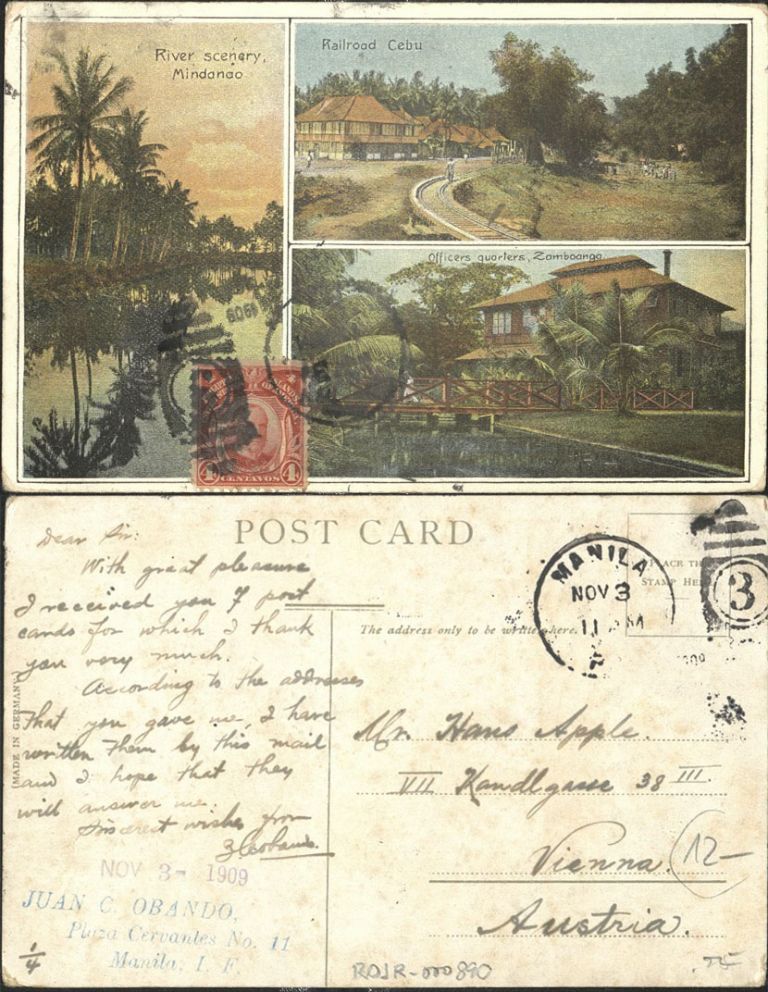 River scenery,
Mindanao
Railroad Cebu
Officers quarters, Zamboanga
1909
4 4
CENTAVOS
POST CARD
Dear Sir:
With great pleasure
I received you 7 post
cards for which I thank
you very much.
According to the addresses
that you gave me, I have
written them by this mail
and I hope that they
will answer me.
wishes from
NOV 3- 1909
JUAN C. OBANDO,
Plaza Cervantes No. 11
Manila, I. F.
1/4
(MADE IN GERMANY)
PLACE TH
STAMP HE
MANILA
NOV 3
11 AM
P
1909
3
The address only to be written here.
Mr. Hans Apple.
VII Kandlgasse 38 III.
Vienna.
12-
Austria.
ROJR-000890